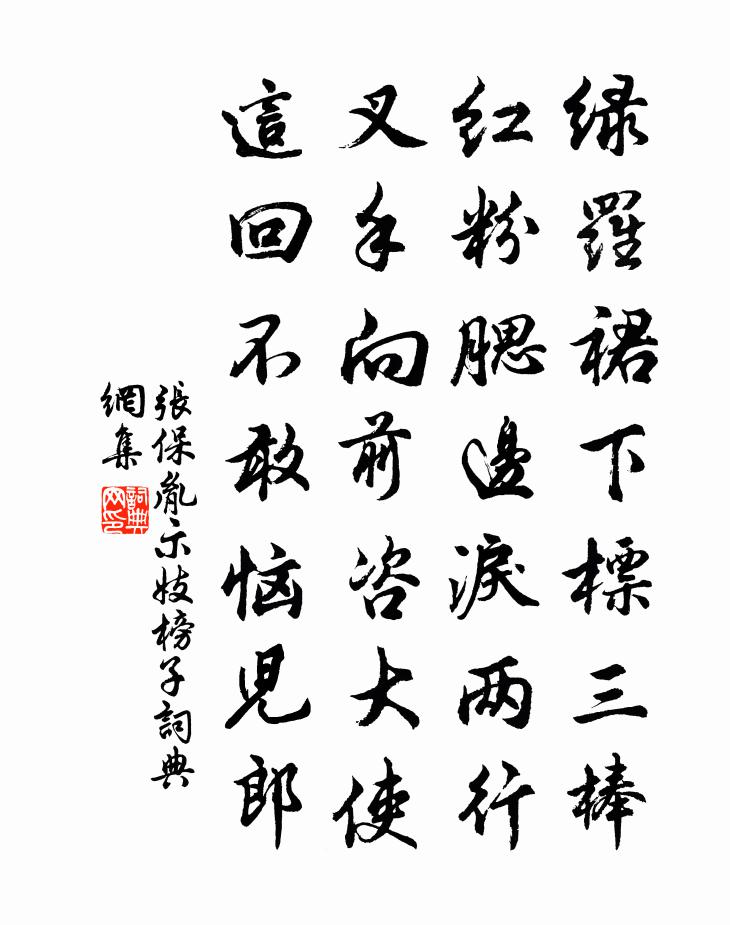 绿羅裙下標三棒
红粉腮邊淚两行
叉手向前咨大使
這回不敢惱児郎
張保胤示妓榜子詞典
網集
詞典网印